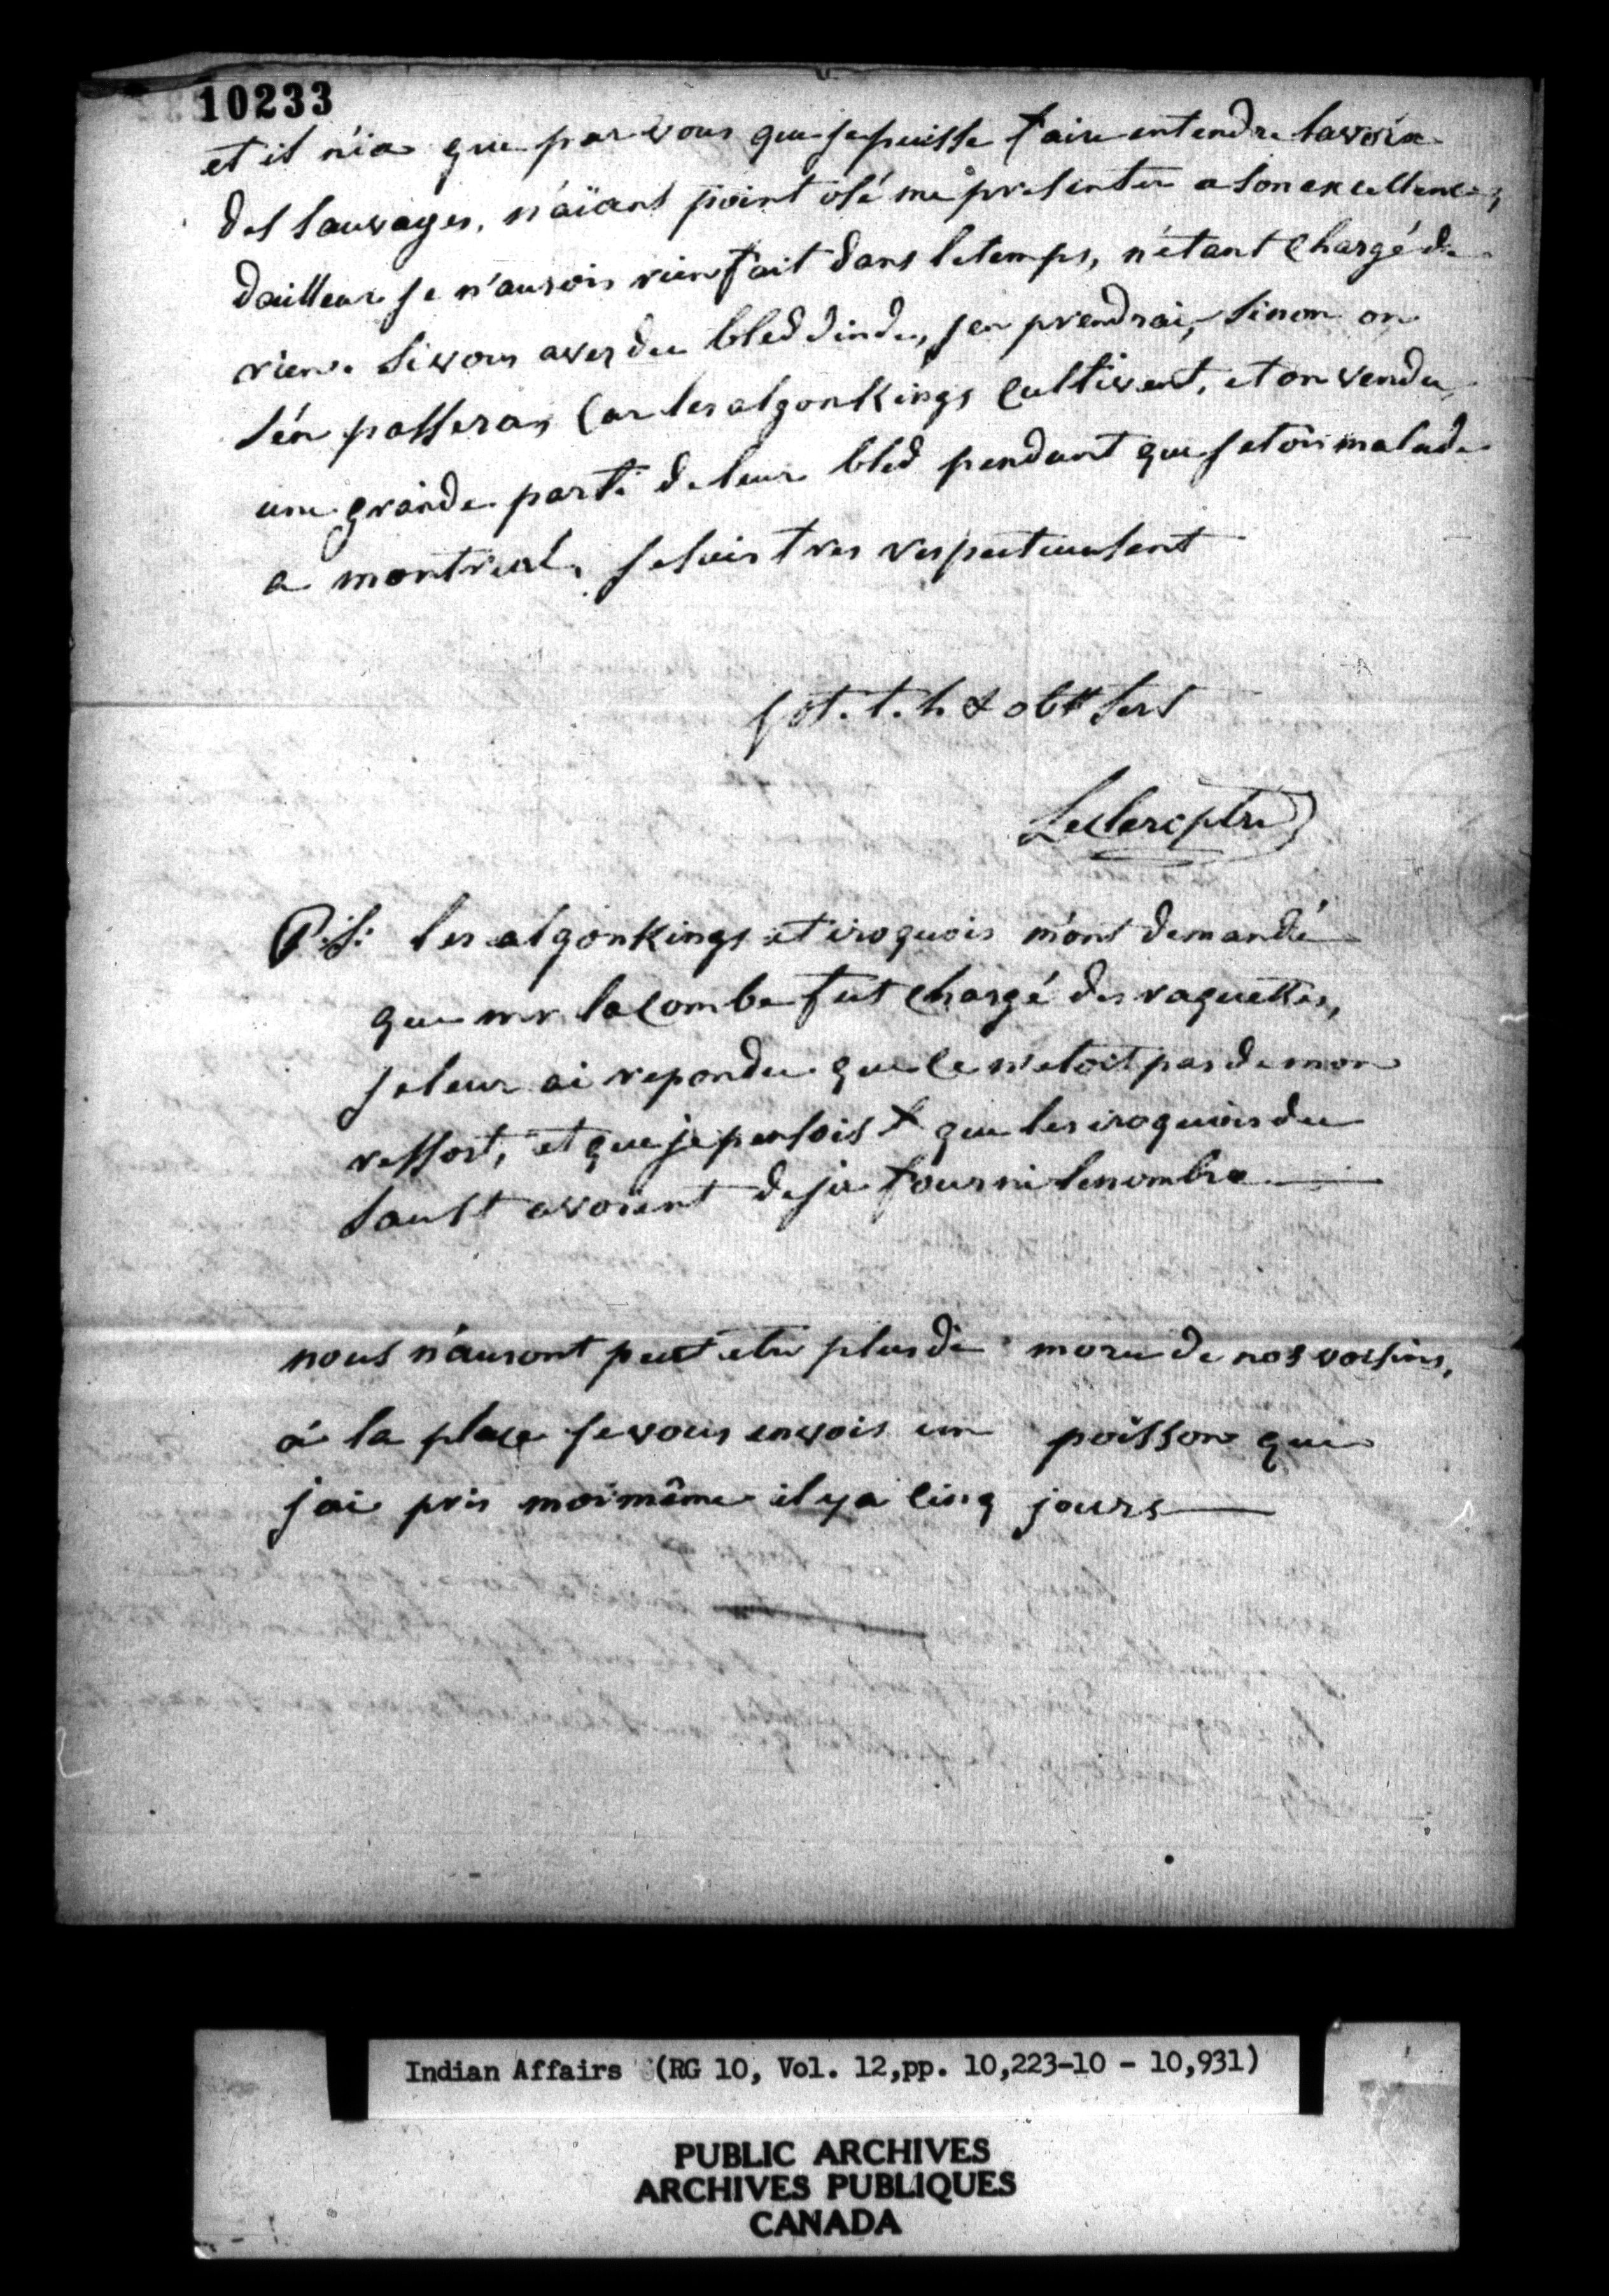 10233
et il n'ïa que par vous que je puisse faire entendre la voix
des sauvages, n'aïant point osé me presenter a son excellence,
dailleur je n'aurois rien fait dans le temps, n'étant chargé de
rien. si vous avez du bled dinde, jen prendrai, sinon on
s'én passera, car les algonkings cultivent, et on vendu
une grande parti de leur bled pendant que jetois malade
a montreal, je suis tres respectueusent
vot. t. h & obt serv
Leclerc ptre
P.S: les algonkings et iroquois m'ont demandé
que mr lacombe fut chargé des raquettes,
je leur ai repondu que ce n'etoit pas de mon
ressort, et que je pensois que les iroquois du
sault avoient deja fourni le nombre
nous n'auront peut etre plus de morue de nos voisins,
á la place je vous envois un poisson que
jai pris moi même il y a cinq jours
Indian Affairs (RG 10, Vol. 12,pp. 10,223-10 - 10,931)
PUBLIC ARCHIVES
ARCHIVES PUBLIQUES
CANADA